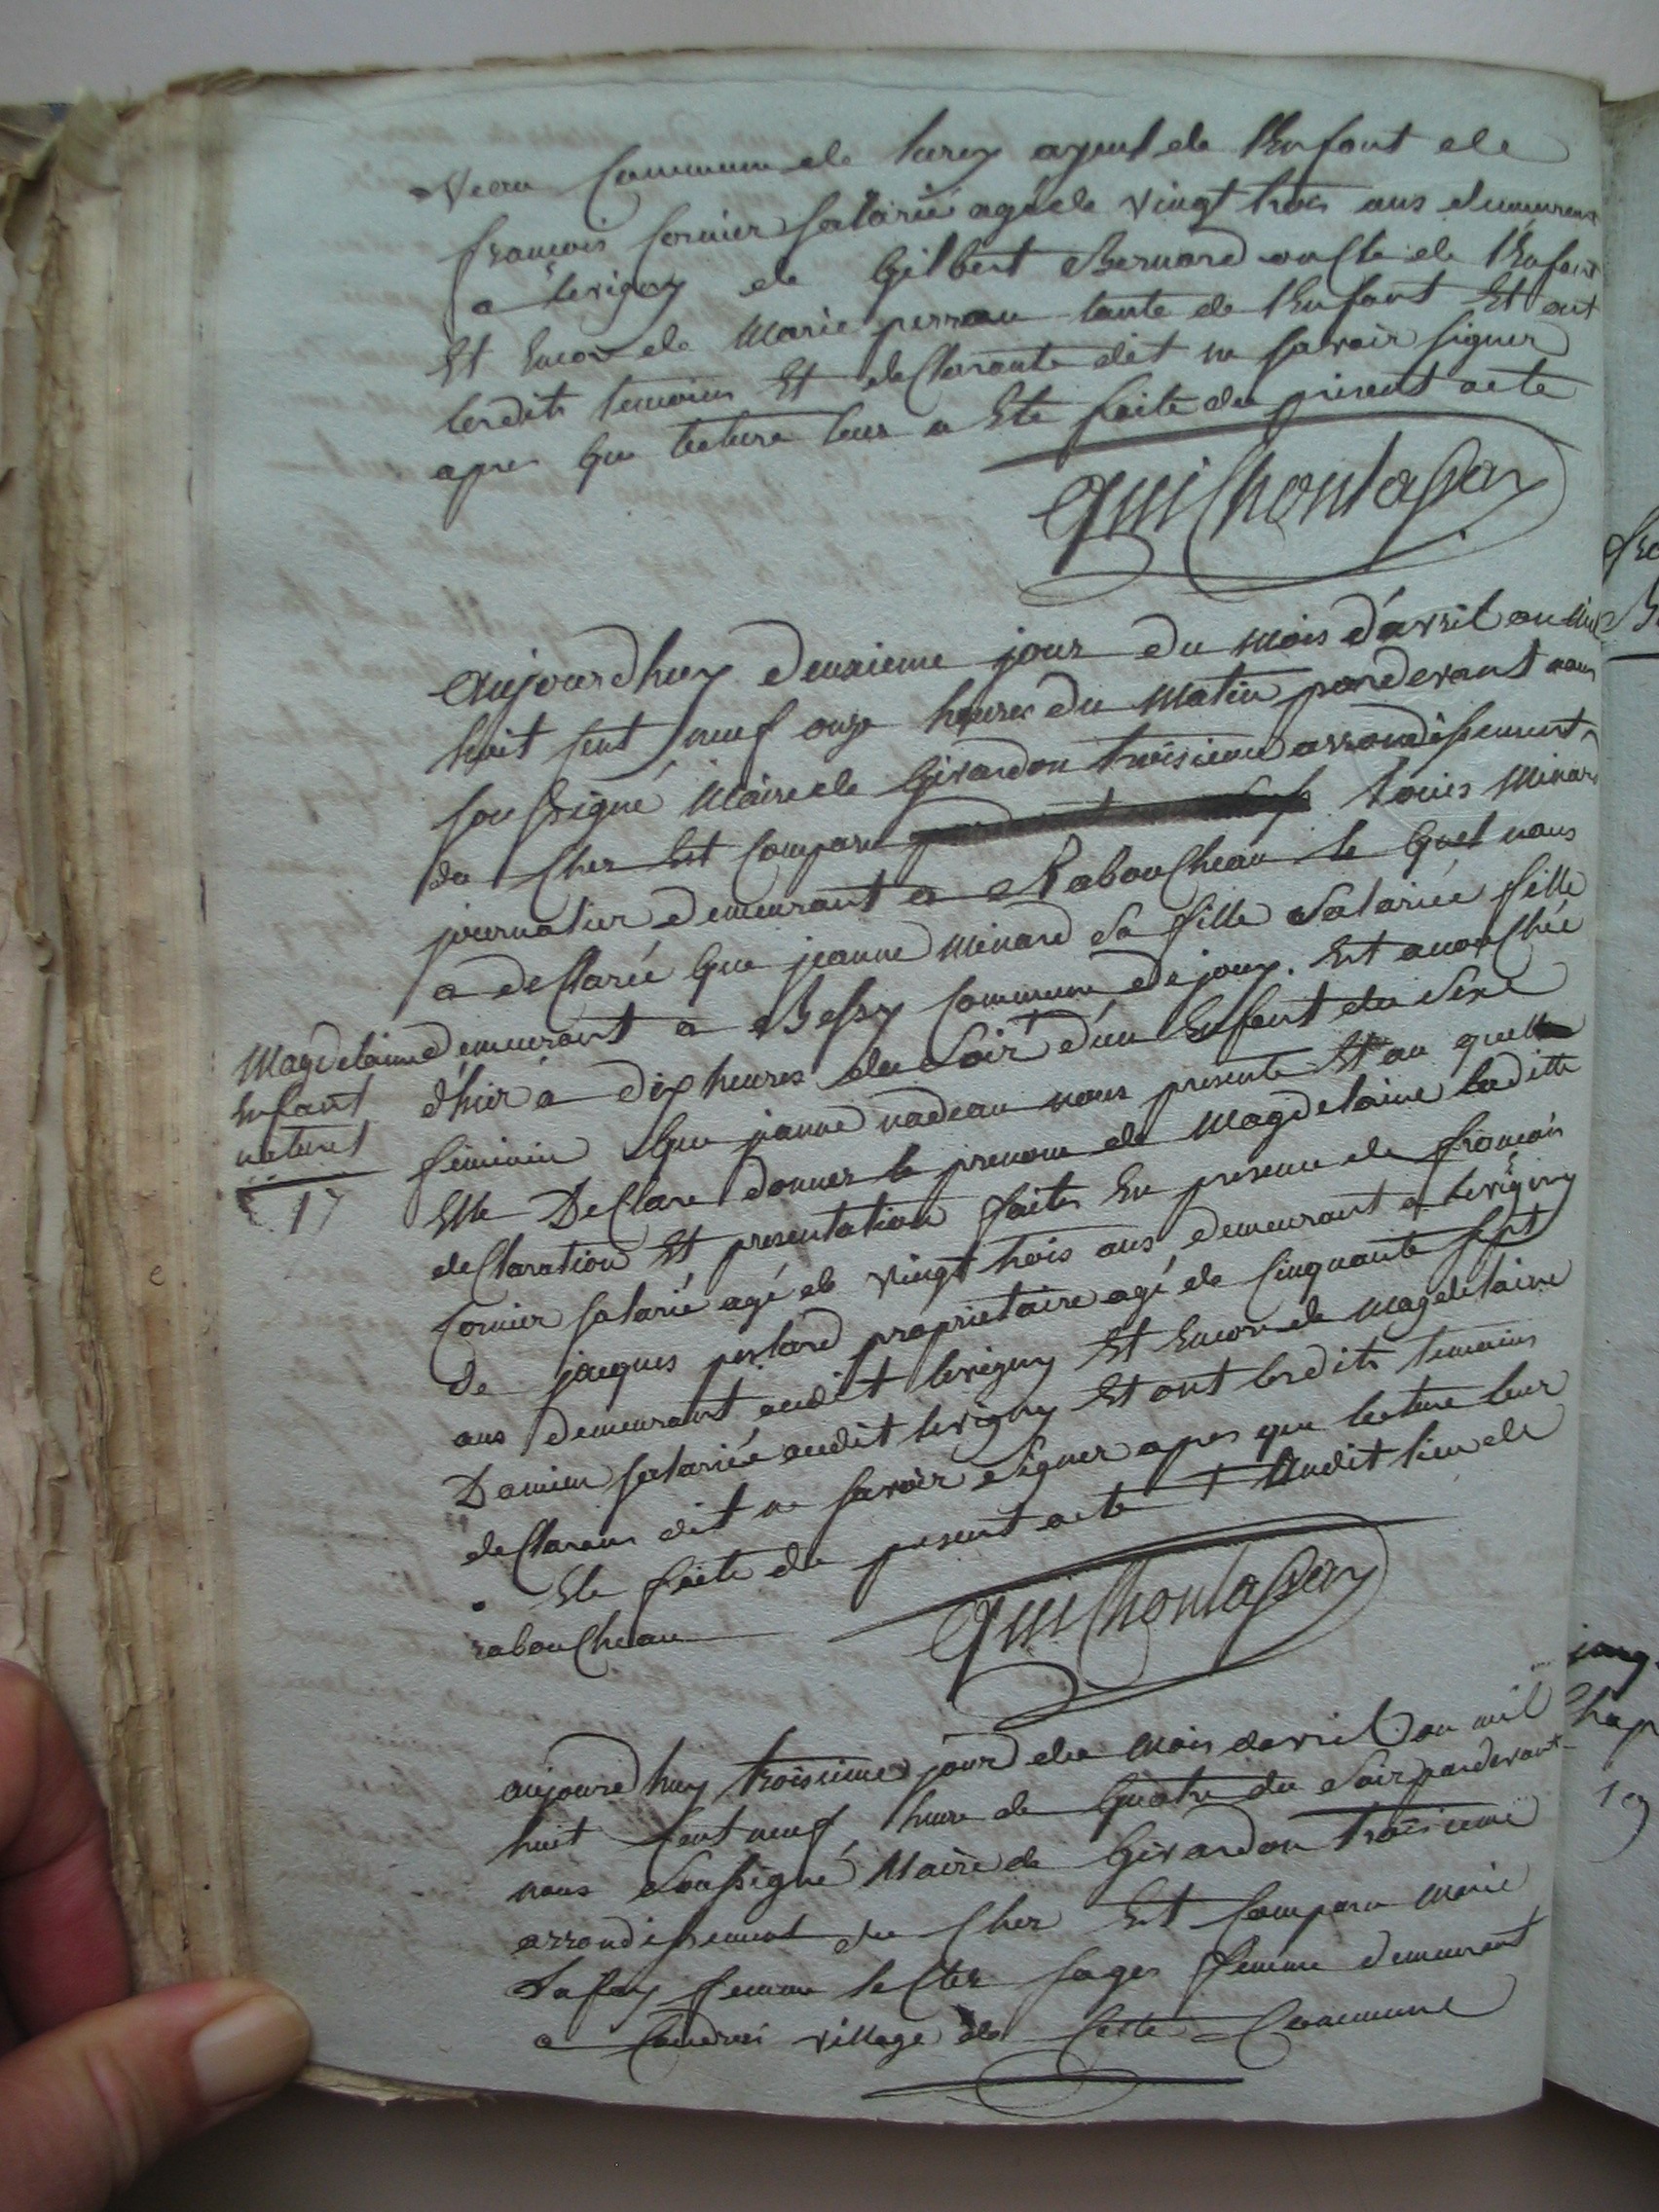 Commune de Lurcy ayeul de l'Enfant de
francois cornier salarié agé de vingt trois ans demeurant
a levigny de Gilbert Bernard oncle de l'Enfant
Et Encore de Marie perrau tante de l'Enfant Et ont
lesdits temoins Et declarante dit ne savoir signer
apres que lecture leur a Ete faite du present acte
aujourdhuy deuxieme jour du mois d'avril an Mil
huit sent neuf onze heures du matin pardevant nous
soussigné Maire de Givardon troisieme arrondissement
du Cher Est comparu Louis Minard
journalier demeurant a Raboucheau le quel nous
a declarée que jeanne Minard sa fille salariée fille
demeurant a Bessy commune de jouy. Est accouchée
d'hier a dix heures du Soir d'un Enfant du Sexe
feminin que jeanne nadeau nous presente Et au quelle
Elle Declare donner le prenom de Magdelaine laditte
declaration Et presentation faites En presence de francois
cornier salarié agé de vingt trois ans demeurant a levigny
De jacques perlard proprietaire agé de cinquante sept
ans demeurant audit levigny Et Encore de Magdelaine
Damien salariée audit levigny Et ont lesdits temoins
declarans dit ne savoir signer apres que lecture leur
a Ete faite du present acte + Audit lieu de
raboucheau
Magdelaine
Enfant
naturel
17
aujourdhuy troisieme jour du mois davril an mil
huit sent neuf heure de quatre du soir pardevant
nous soussigné Maire de Givardon troisieme
arrondissement du Cher Est comparu Marie
Lafay femme lecler sages femme demeurant
a village de cette Commune
19